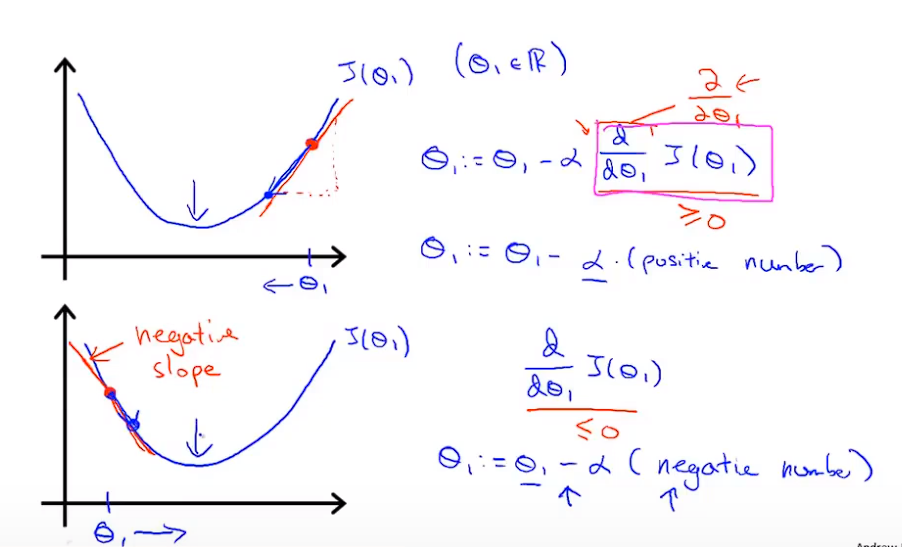 J(Θ₁) (Θ₁ ∈ ℝ)
∂/∂Θ₁ ←
Θ₁ := Θ₁ - α d/dΘ₁ J(Θ₁)
≥ 0
Θ₁ := Θ₁ - α · (positive number)
← Θ₁
negative slope
J(Θ₁)
d/dΘ₁ J(Θ₁)
≤ 0
Θ₁ := Θ₁ - α (negative number)
Θ₁ →